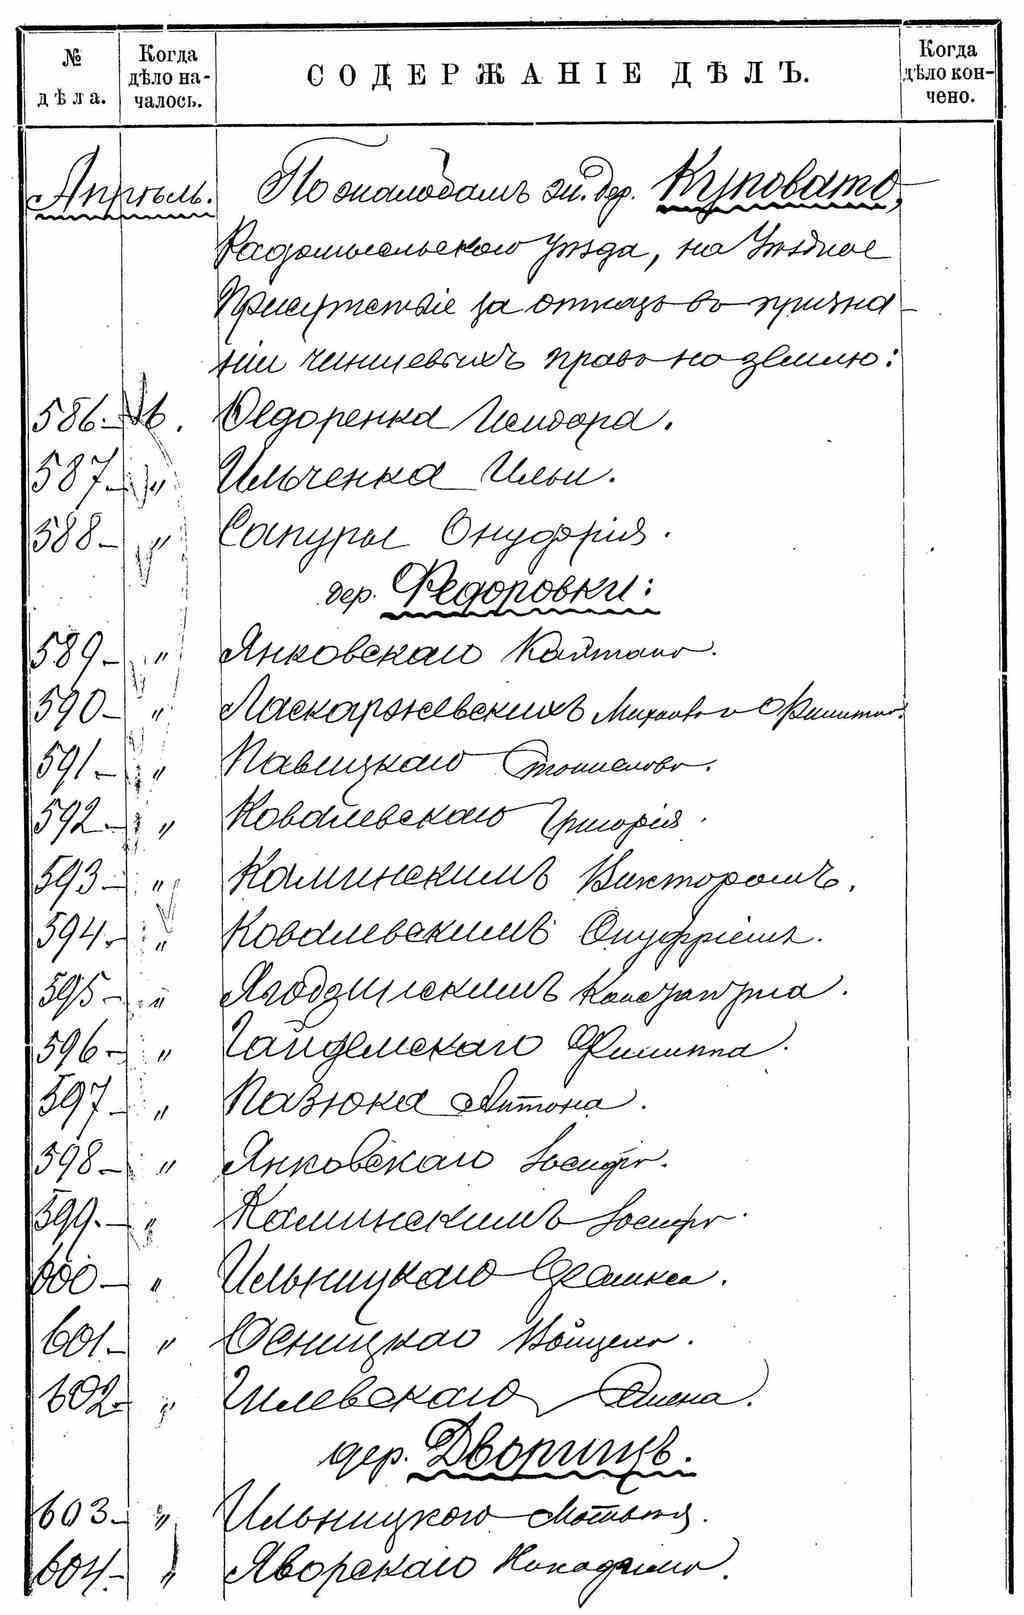 № дѣла.
Когда дѣло началось.
СОДЕРЖАНІЕ ДѢЛЪ.
Когда дѣло кончено.
Апрѣль. По жалобамъ жи. дер. Куповато,
Радомысльскаго Уѣзда, на Уѣздное
Присутствіе за отказъ въ призна-
ніи чиншевыхъ правъ на землю:
586. Ѳедоренка Исидора.
587 " Ильченка Ильи.
588 " Сапуры Онуфрія.
дер. Федоровки:
589 " Янковскаго Каэтана.
590 " Ласкаржевскихъ Михаила и Филиппа.
591 " Павицкаго Станислава.
592 " Ковалевскаго Григорія.
593 " Каминскимъ Викторомъ.
594 " Ковалевскимъ Онуфріемъ.
595 " Ягодзинскимъ Константина.
596 " Гайдемскаго Филиппа.
597 " Пазюка Антона.
598 " Янковскаго Іосифа.
599 " Каминскимъ Іосифа
600 " Ильницкаго
601 " Осницкаго
602 " Гилевскаго
дер. Дворищъ.
603 " Ильницкого Матвѣя.
604 " Яворскаго Никодима.